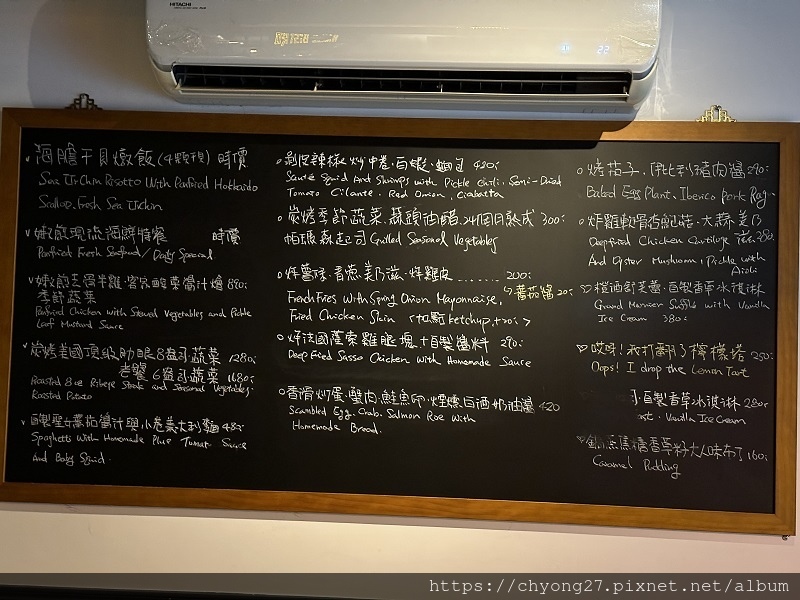 HITACHI
22
海膽干貝燉飯(4顆頭) 時價
Sea Urchin Risotto With Panfried Hokkaido
Scallop. Fresh Sea Urchin
嫩煎現流海鮮特餐 時價
Panfried Fresh Seafood/ Daily Speacal
嫩煎去骨半雞·客家酸菜醬汁燴 880.-
季節蔬菜
Panfried Chicken with Stewed Vegetables and Pickle
Leaf Mustard Sauce
炭烤美國頂級肋眼8盎司蔬菜 1280.-
老饕 6盎司蔬菜 1680.-
Roasted 8oz Ribeye Steak and Seasonal Vegetables
Roasted Potato
自製聖女蕃茄醬汁與小卷義大利麵 480.-
Spaghetti With Homemade Plum Tomato Sauce
And Baby Squid.
剝皮辣椒炒中卷·白蝦·麵包 480.-
Sauté Squid And Shrimps with Pickle Chili. Semi-Dried
Tomato Cilante. Red Onion. Ciabatta
炭烤季節蔬菜.蒜頭油醋.24個月熟成 300.-
帕瑪森起司 Grilled Seasonal Vegetables
炸薯球·青蔥美乃滋·炸雞皮 ......... 200.-
↳蕃茄醬 20.-
French Fries With Spring Onion Mayonnaise,
Fried Chicken Skin 「加點 ketchup,+20.-」
炸法國薩索雞腿塊+自製醬料 290.-
Deepfried Sasso Chicken With Homemade Sauce
香滑炒蛋·蟹肉·鮭魚卵·煙燻白酒奶油醬 420
Scambled Egg. Crab. Salmon Roe With
Homemade Bread.
烤茄子.伊比利豬肉醬 290.-
Baked Egg Plant. Iberico Pork Rag.
炸雞軟骨杏鮑菇·大蒜美乃
滋 280.-
Deepfried Chicken Cartilage
And Oyster Mushroom, Pickle with
Aioli
橙酒舒芙蕾·自製香草冰淇淋
Grand Marnier Soufflé with Vanilla
Ice Cream 380.-
哎呀!我打翻了檸檬塔 250.-
Oops! I drop the Lemon Tart
自製香草冰淇淋 280.-
Vanilla Ice Cream
焦糖香草籽大人味布丁 160.-
Caramel Pudding
https://chyong27.pixnet.net/album